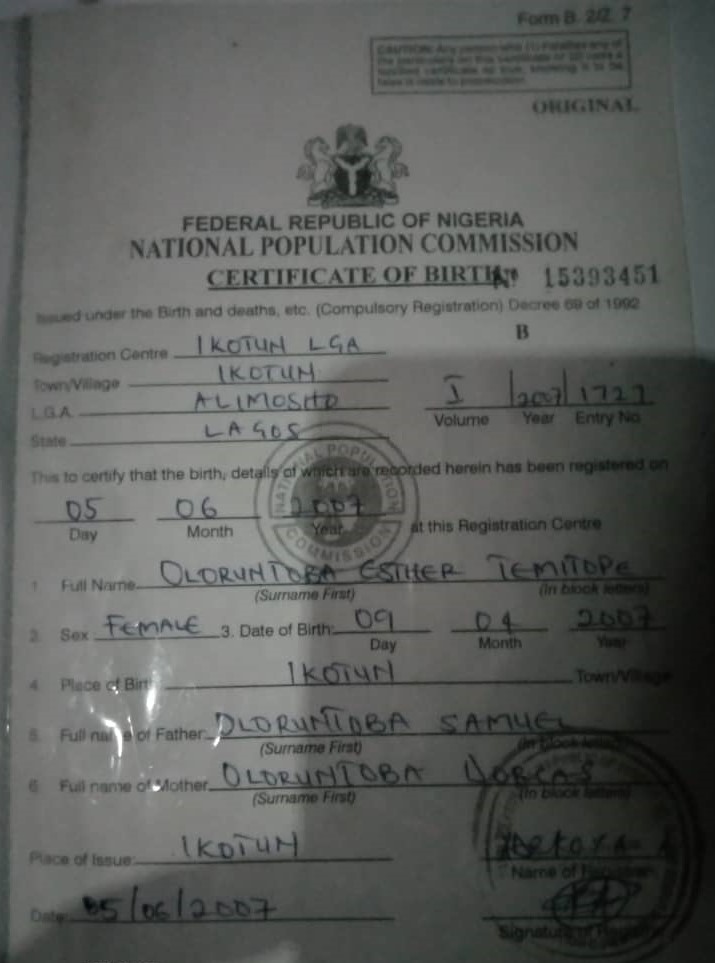 Form B. 2/Z. 7
CAUTION: Any person who (1) Falsifies any of
the particulars on this certificate or (2) uses a
falsified certificate as true, knowing it to be
false is liable to prosecution.
ORIGINAL
FEDERAL REPUBLIC OF NIGERIA
NATIONAL POPULATION COMMISSION
CERTIFICATE OF BIRTH Nº 15393451
Issued under the Birth and deaths, etc. (Compulsory Registration) Decree 69 of 1992
B
Registration Centre IKOTUN LGA
Town/Village IKOTUN
L.G.A. ALIMOSHO
I 2007 1727
Volume Year Entry No
State LAGOS
This to certify that the birth, details of which are recorded herein has been registered on
05 06 2007 at this Registration Centre
Day Month Year
NATIONAL POPULATION COMMISSION
1. Full Name OLORUNTOBA ESTHER TEMITOPE
(Surname First) (In block letters)
2. Sex FEMALE 3. Date of Birth: 09 04 2007
Day Month Year
4. Place of Birth IKOTUN Town/Village
5. Full name of Father OLORUNTOBA SAMUEL
(Surname First) (In block letters)
6. Full name of Mother OLORUNTOBA DORCAS
(Surname First) (In block letters)
Place of Issue: IKOTUN
Name of Registrar
Date: 05/06/2007
Signature of Registrar